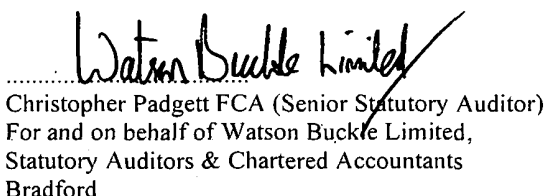 Watson Buckle Limited
Christopher Padgett FCA (Senior Statutory Auditor)
For and on behalf of Watson Buckle Limited,
Statutory Auditors & Chartered Accountants
Bradford